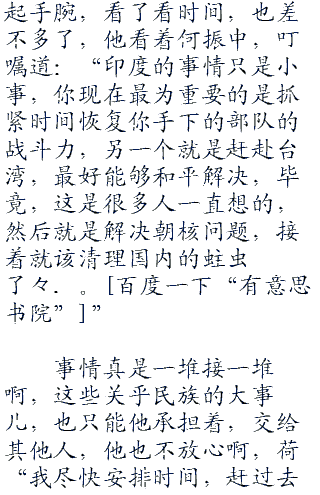 起手腕，看了看时间，也差
不多了，他看着何振中，叮
嘱道：“印度的事情只是小
事，你现在最为重要的是抓
紧时间恢复你手下的部队的
战斗力，另一个就是赶赴台
湾，最好能够和平解决，毕
竟，这是很多人一直想的，
然后就是解决朝核问题，接
着就该清理国内的蛀虫
了々．。[百度一下“有意思
书院”]”
事情真是一堆接一堆
啊，这些关乎民族的大事
儿，也只能他承担着，交给
其他人，他也不放心啊，荷
“我尽快安排时间，赶过去